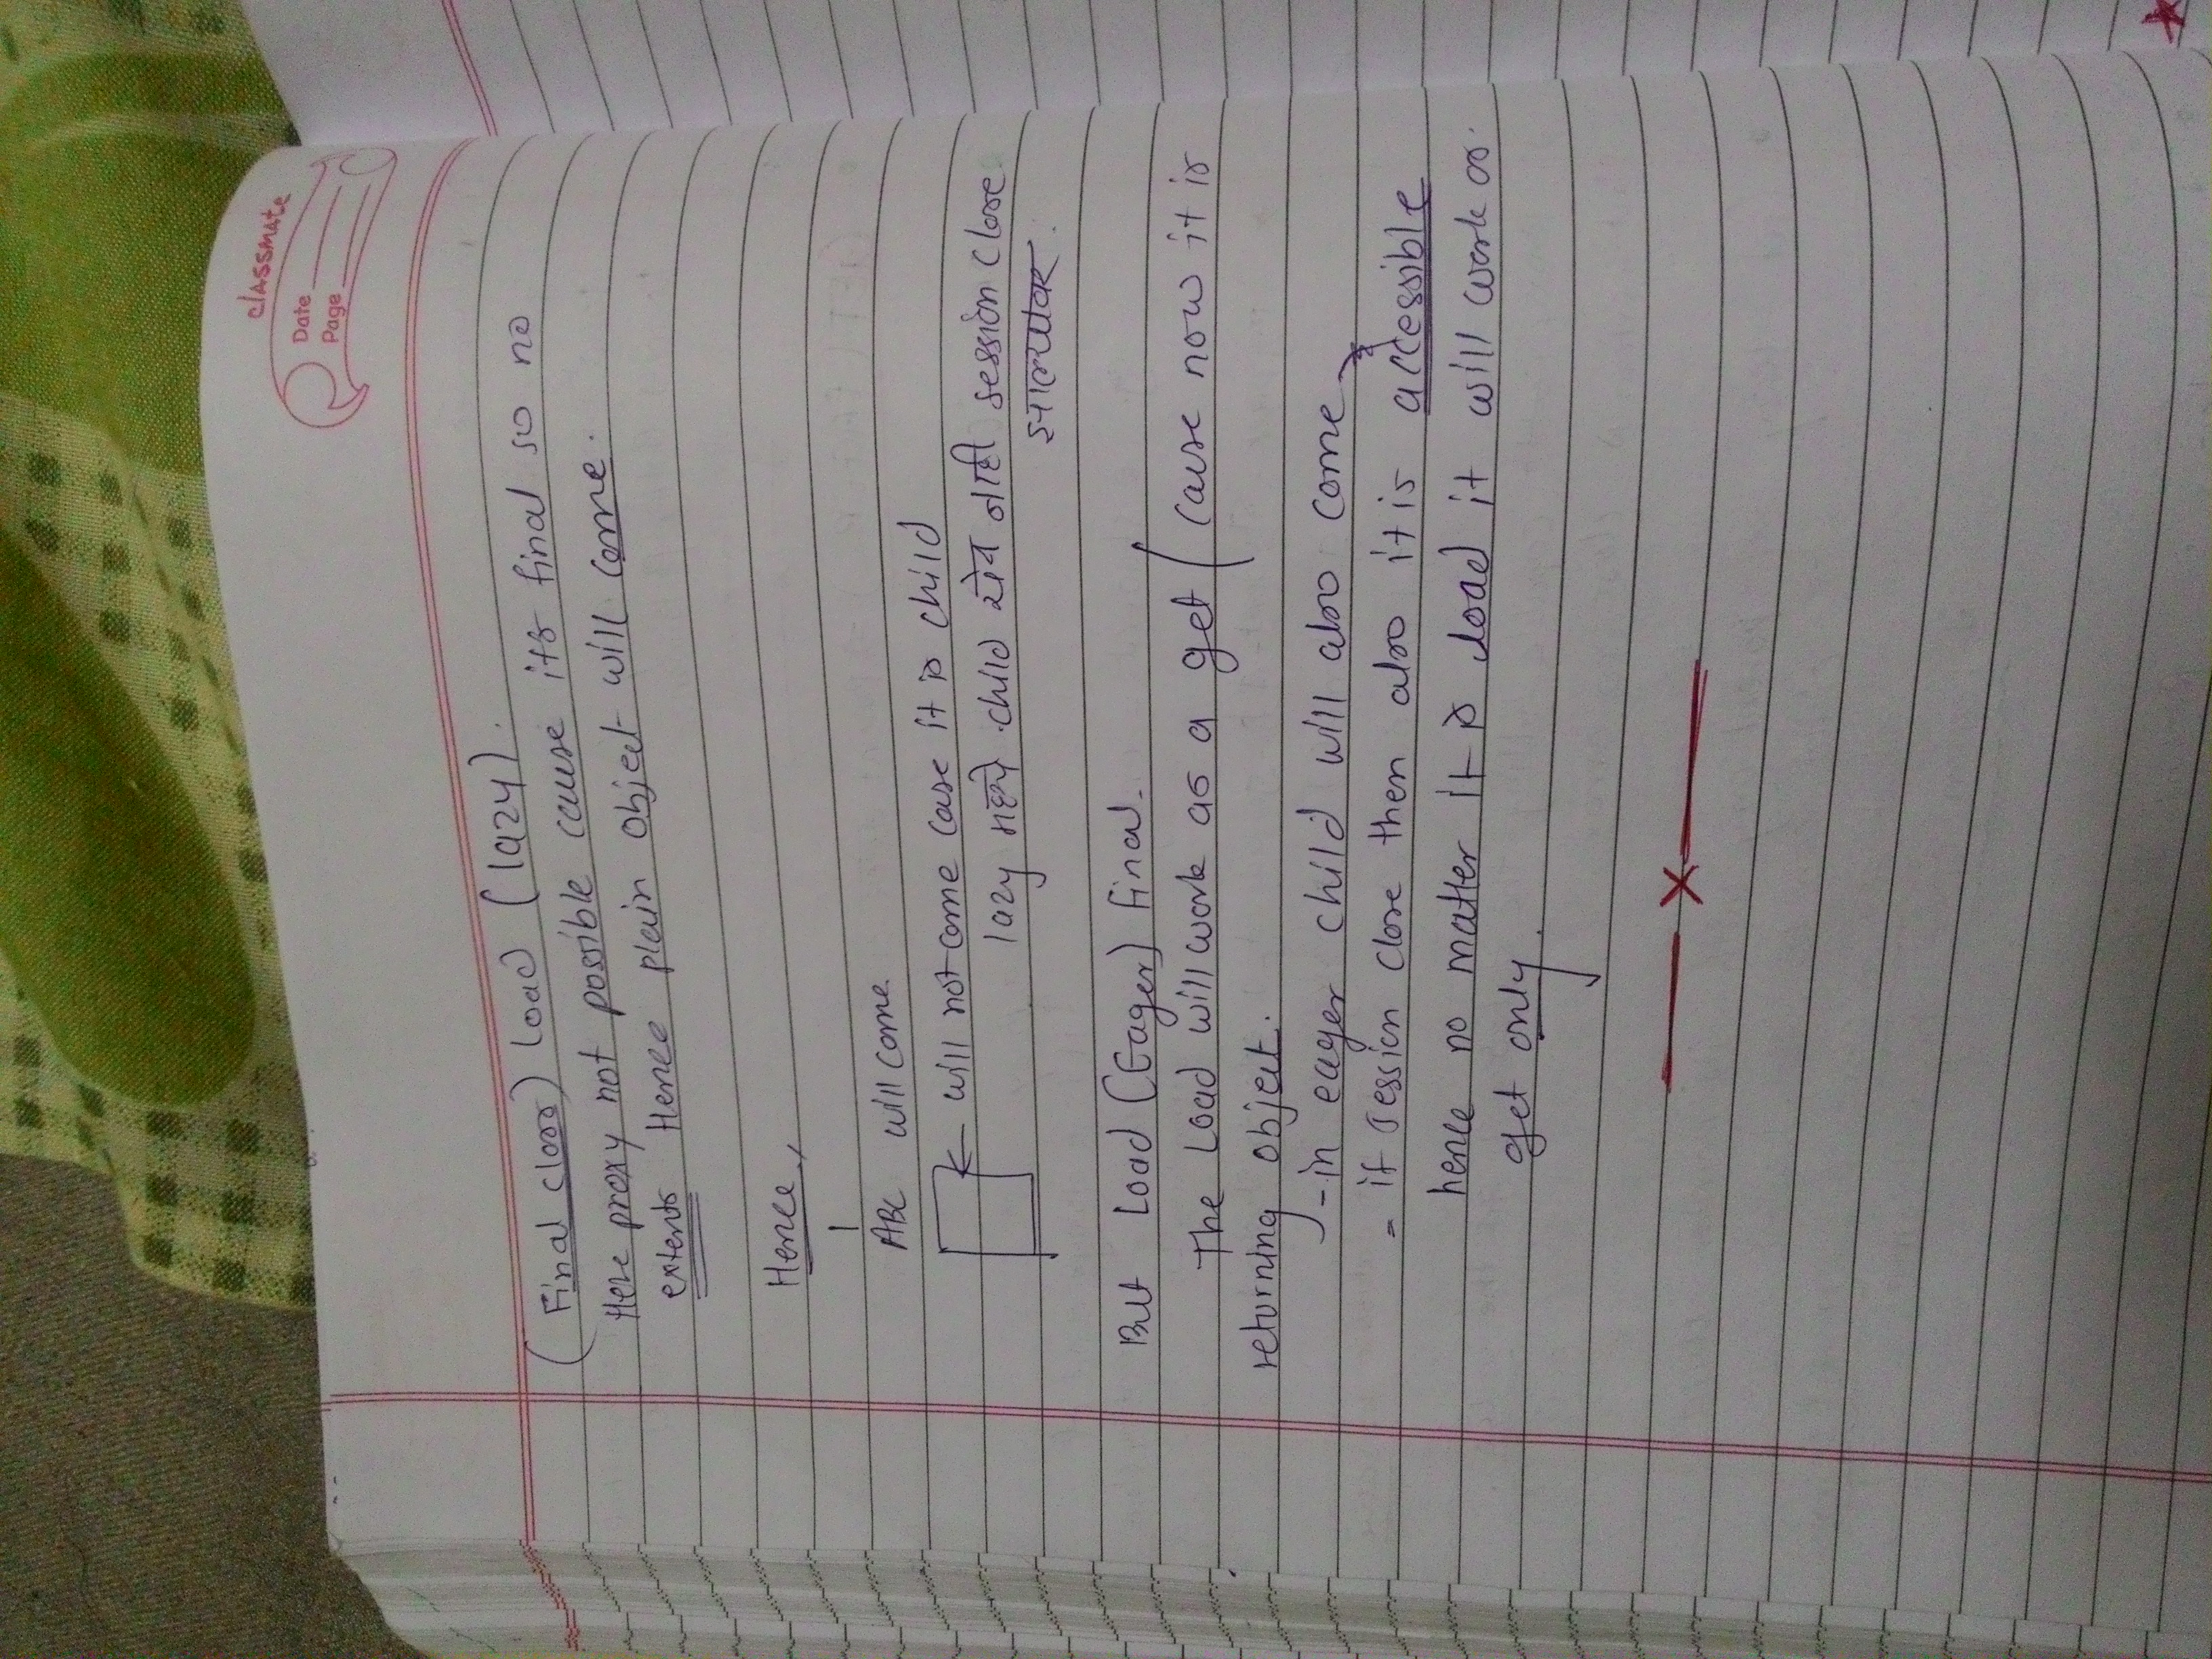 classmate
Date
Page
(Final class) Load (lazy).
Here proxy not possible cause its final so no
extents Hence plain object will come.
Hence,
1
ABC will come.
← will not come case it is child
lazy मध्ये child येत नाही session close
झाल्यावर.
But Load (Eager) final.
The Load will work as a get ( cause now it is
returning object.
- in eager child will also come
- if session close then also it is accessible
hence no matter it is load it will work as
get only.
X